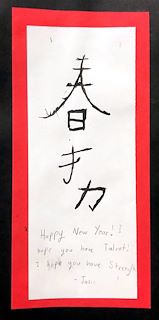 春
才
力
Happy New Year! I
hope you have Talent!
I hope you have Strength